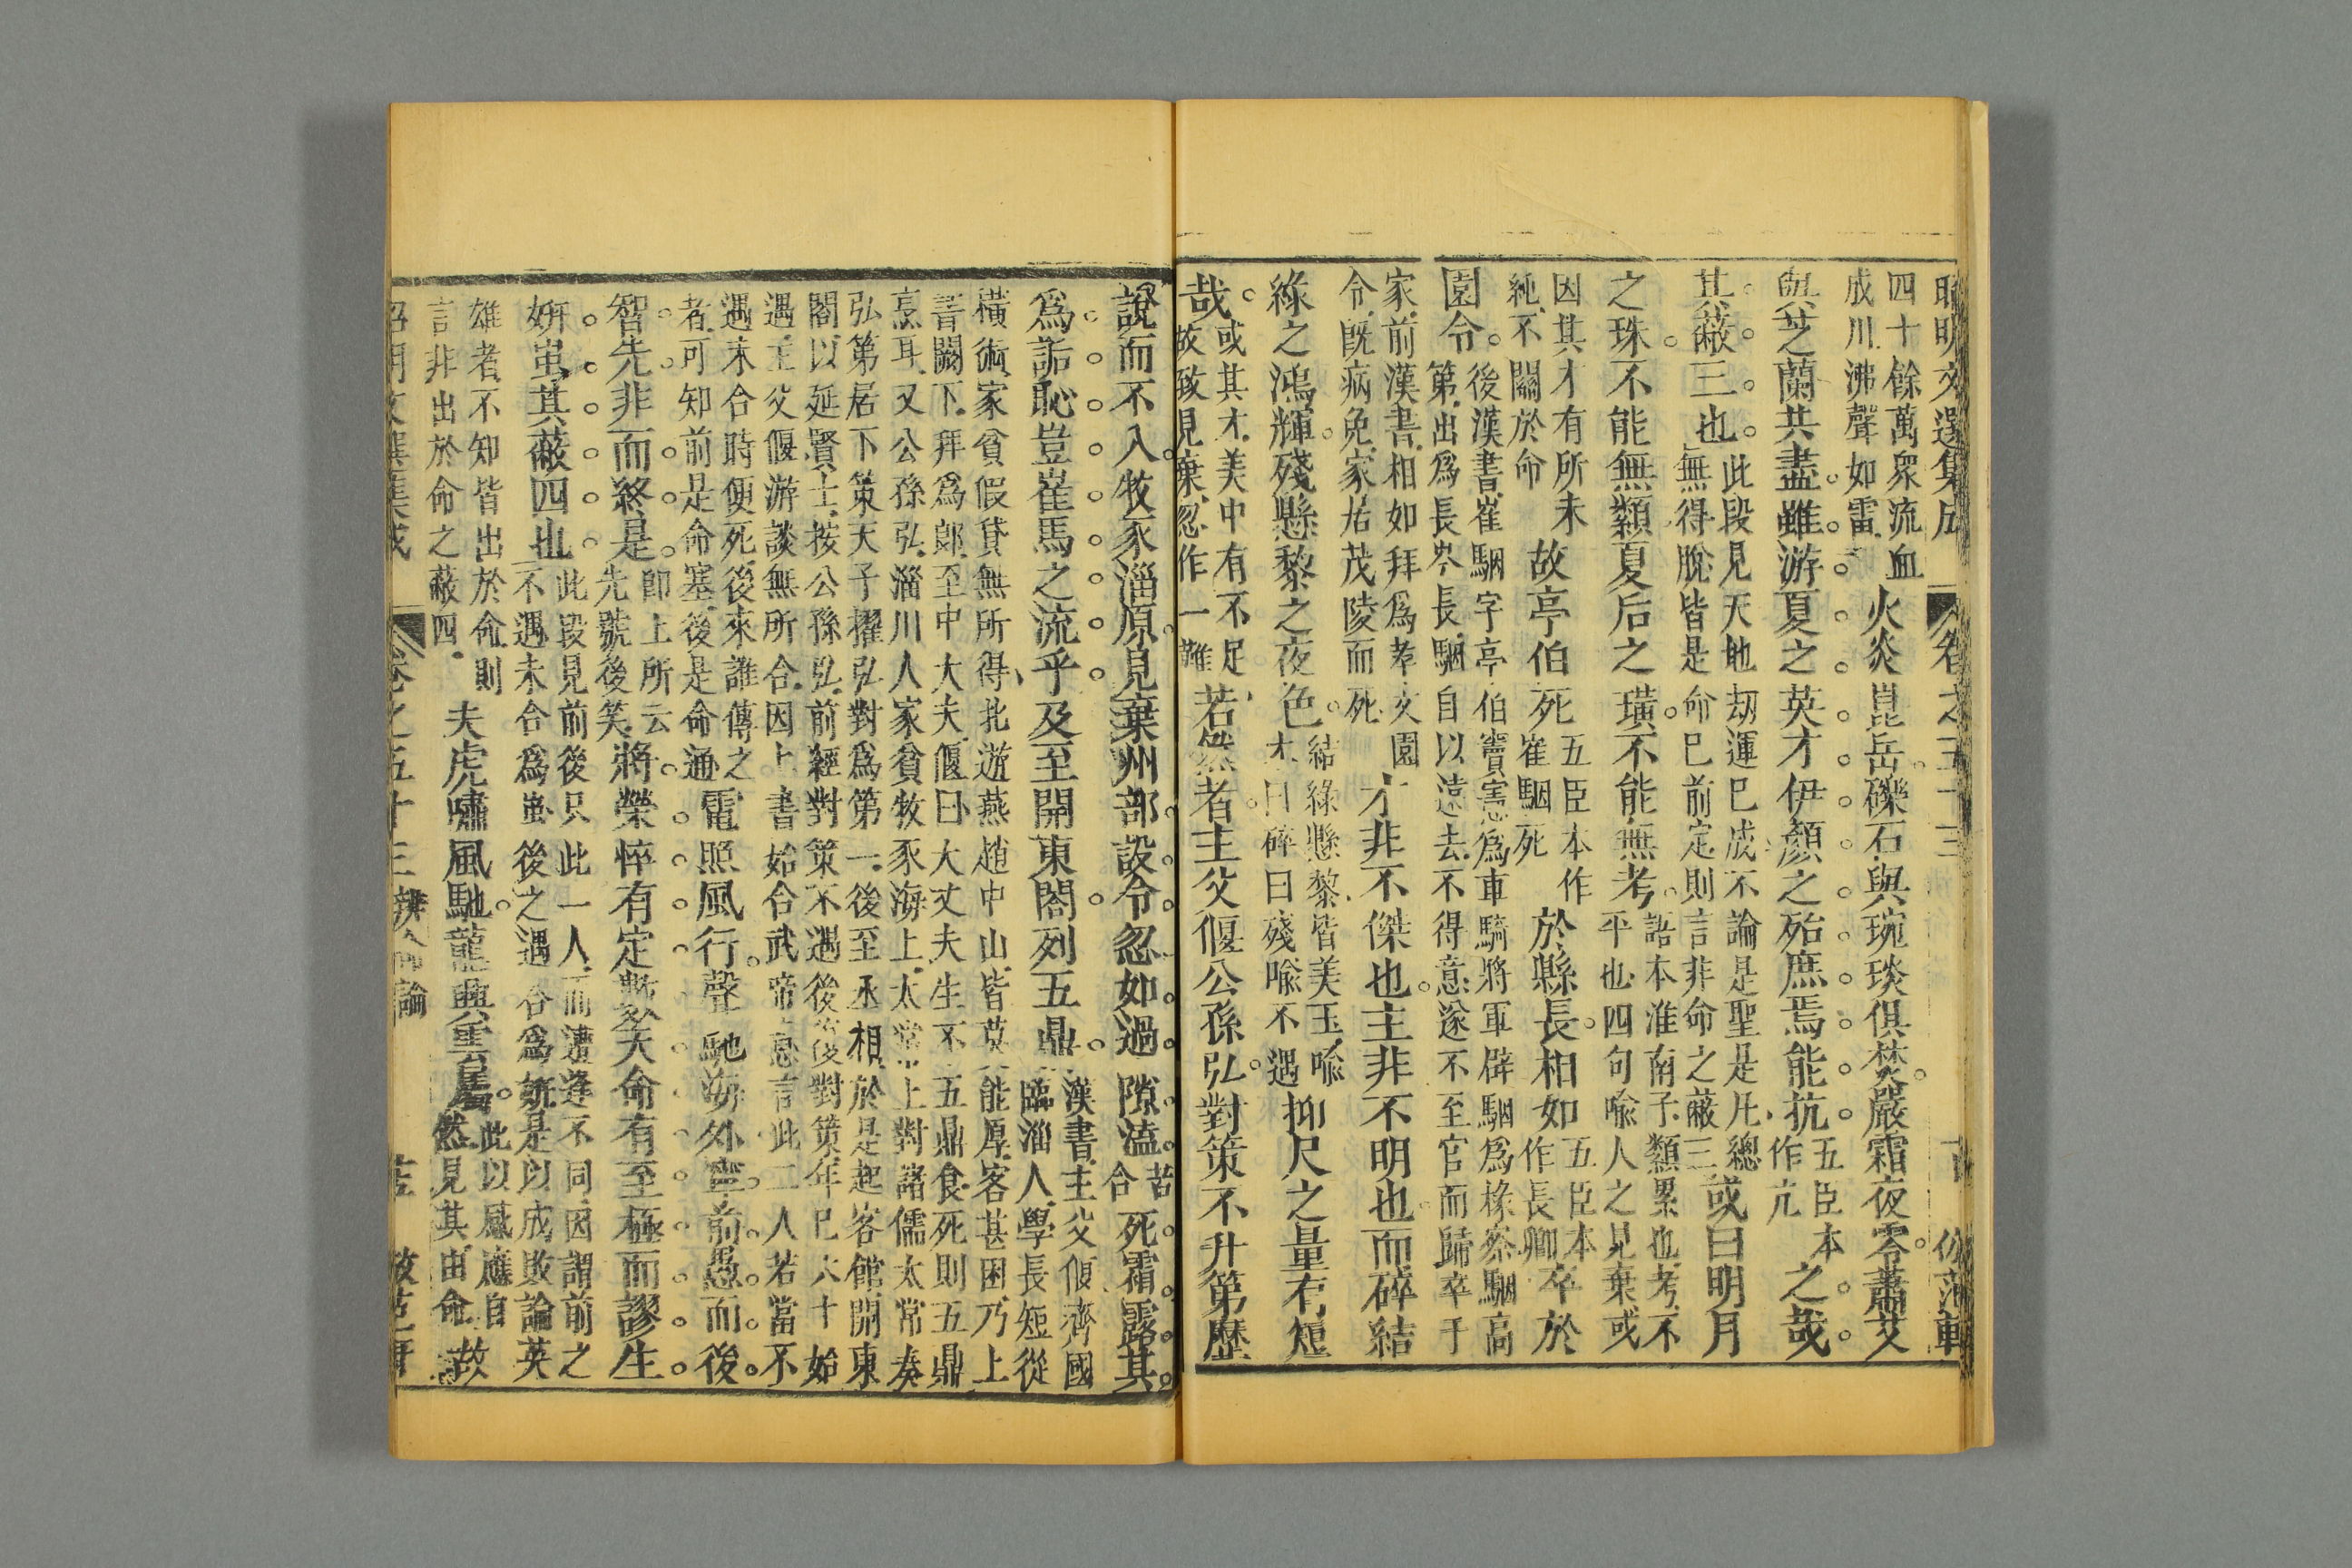 昭明文選集成 卷之五十三 古 仿蒲軒
四十餘萬衆流血成川沸聲如雷 火炎崑岳礫石與琬琰俱焚嚴霜夜零蕭艾
與芝蘭共盡雖游夏之英才伊顏之殆庶焉能抗 五臣本作亢 之哉
其蔽三也 此段見天地刼運已成不論是聖是凡總無得脫皆是命已前定則言非命之蔽三 或曰明月
之珠不能無纇夏后之璜不能無考 語本淮南子纇累也考不平也四句喻人之見棄或
因其才有所未純不關於命 故亭伯死 五臣本作崔駰死 於縣長相如 五臣本作長卿 卒於
園令 後漢書崔駰字亭伯竇憲為車騎將軍辟駰為掾察駰高第出為長岑長駰自以遠去不得意遂不至官而歸卒于
家前漢書相如拜為孝文園令既病免家居茂陵而死 才非不傑也主非不明也而碎結
綠之鴻輝殘懸黎之夜色 結綠懸黎皆美玉喻才曰碎曰殘喻不遇 抑尺之量有短
哉 或其才美中有不足故致見棄忽作一難 若然者主父偃公孫弘對策不升第歷
說而不入牧豕淄原見棄州部設令忽如過隙溘 苦合 死霜露其
為詬恥豈崔馬之流乎及至開東閤列五鼎 漢書主父偃濟國臨淄人學長短從
橫術家貧假貸無所得北遊燕趙中山皆莫能厚客甚困乃上
書闕下拜為郎至中大夫偃曰大丈夫生不五鼎食死則五鼎
烹耳又公孫弘淄川人家貧牧豕海上太常上對諸儒太常奏
弘第居下策天子擢弘對為第一後至丞相於是起客館開東
閤以延賢士按公孫弘前經對策不遇後復對策年已六十始
遇主父偃游談無所合因上書始合武帝意言此二人若當不
遇未合時便死後來誰傳之
者可知前是命塞後是命通 電照風行聲馳海外寧前愚而後
智先非而終是 即上所云先號後笑 將榮悴有定數天命有至極而謬生
妍蚩其蔽四也 此段見前後只此一人而遭逢不同因謂前之不遇未合為蚩後之遇合為妍是以成敗論英
雄者不知皆出於命則言非出於命之蔽四 夫虎嘯風馳龍興雲屬 此以感應自然見其由命 故
昭明文選集成 卷之五十三 辨命論